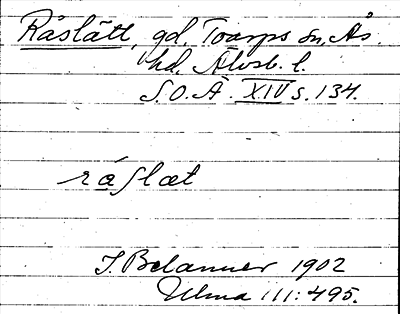 Råslätt, gd. Toarps sn, Ås
hd. Älvsb. l.
S.O.Ä. XIV s. 134.
ráslæt
Ulma 111:495.
J. Belanner 1902